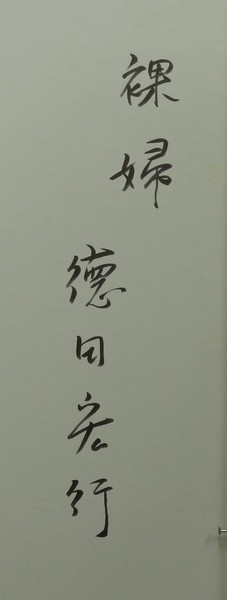 裸婦
徳田宏行